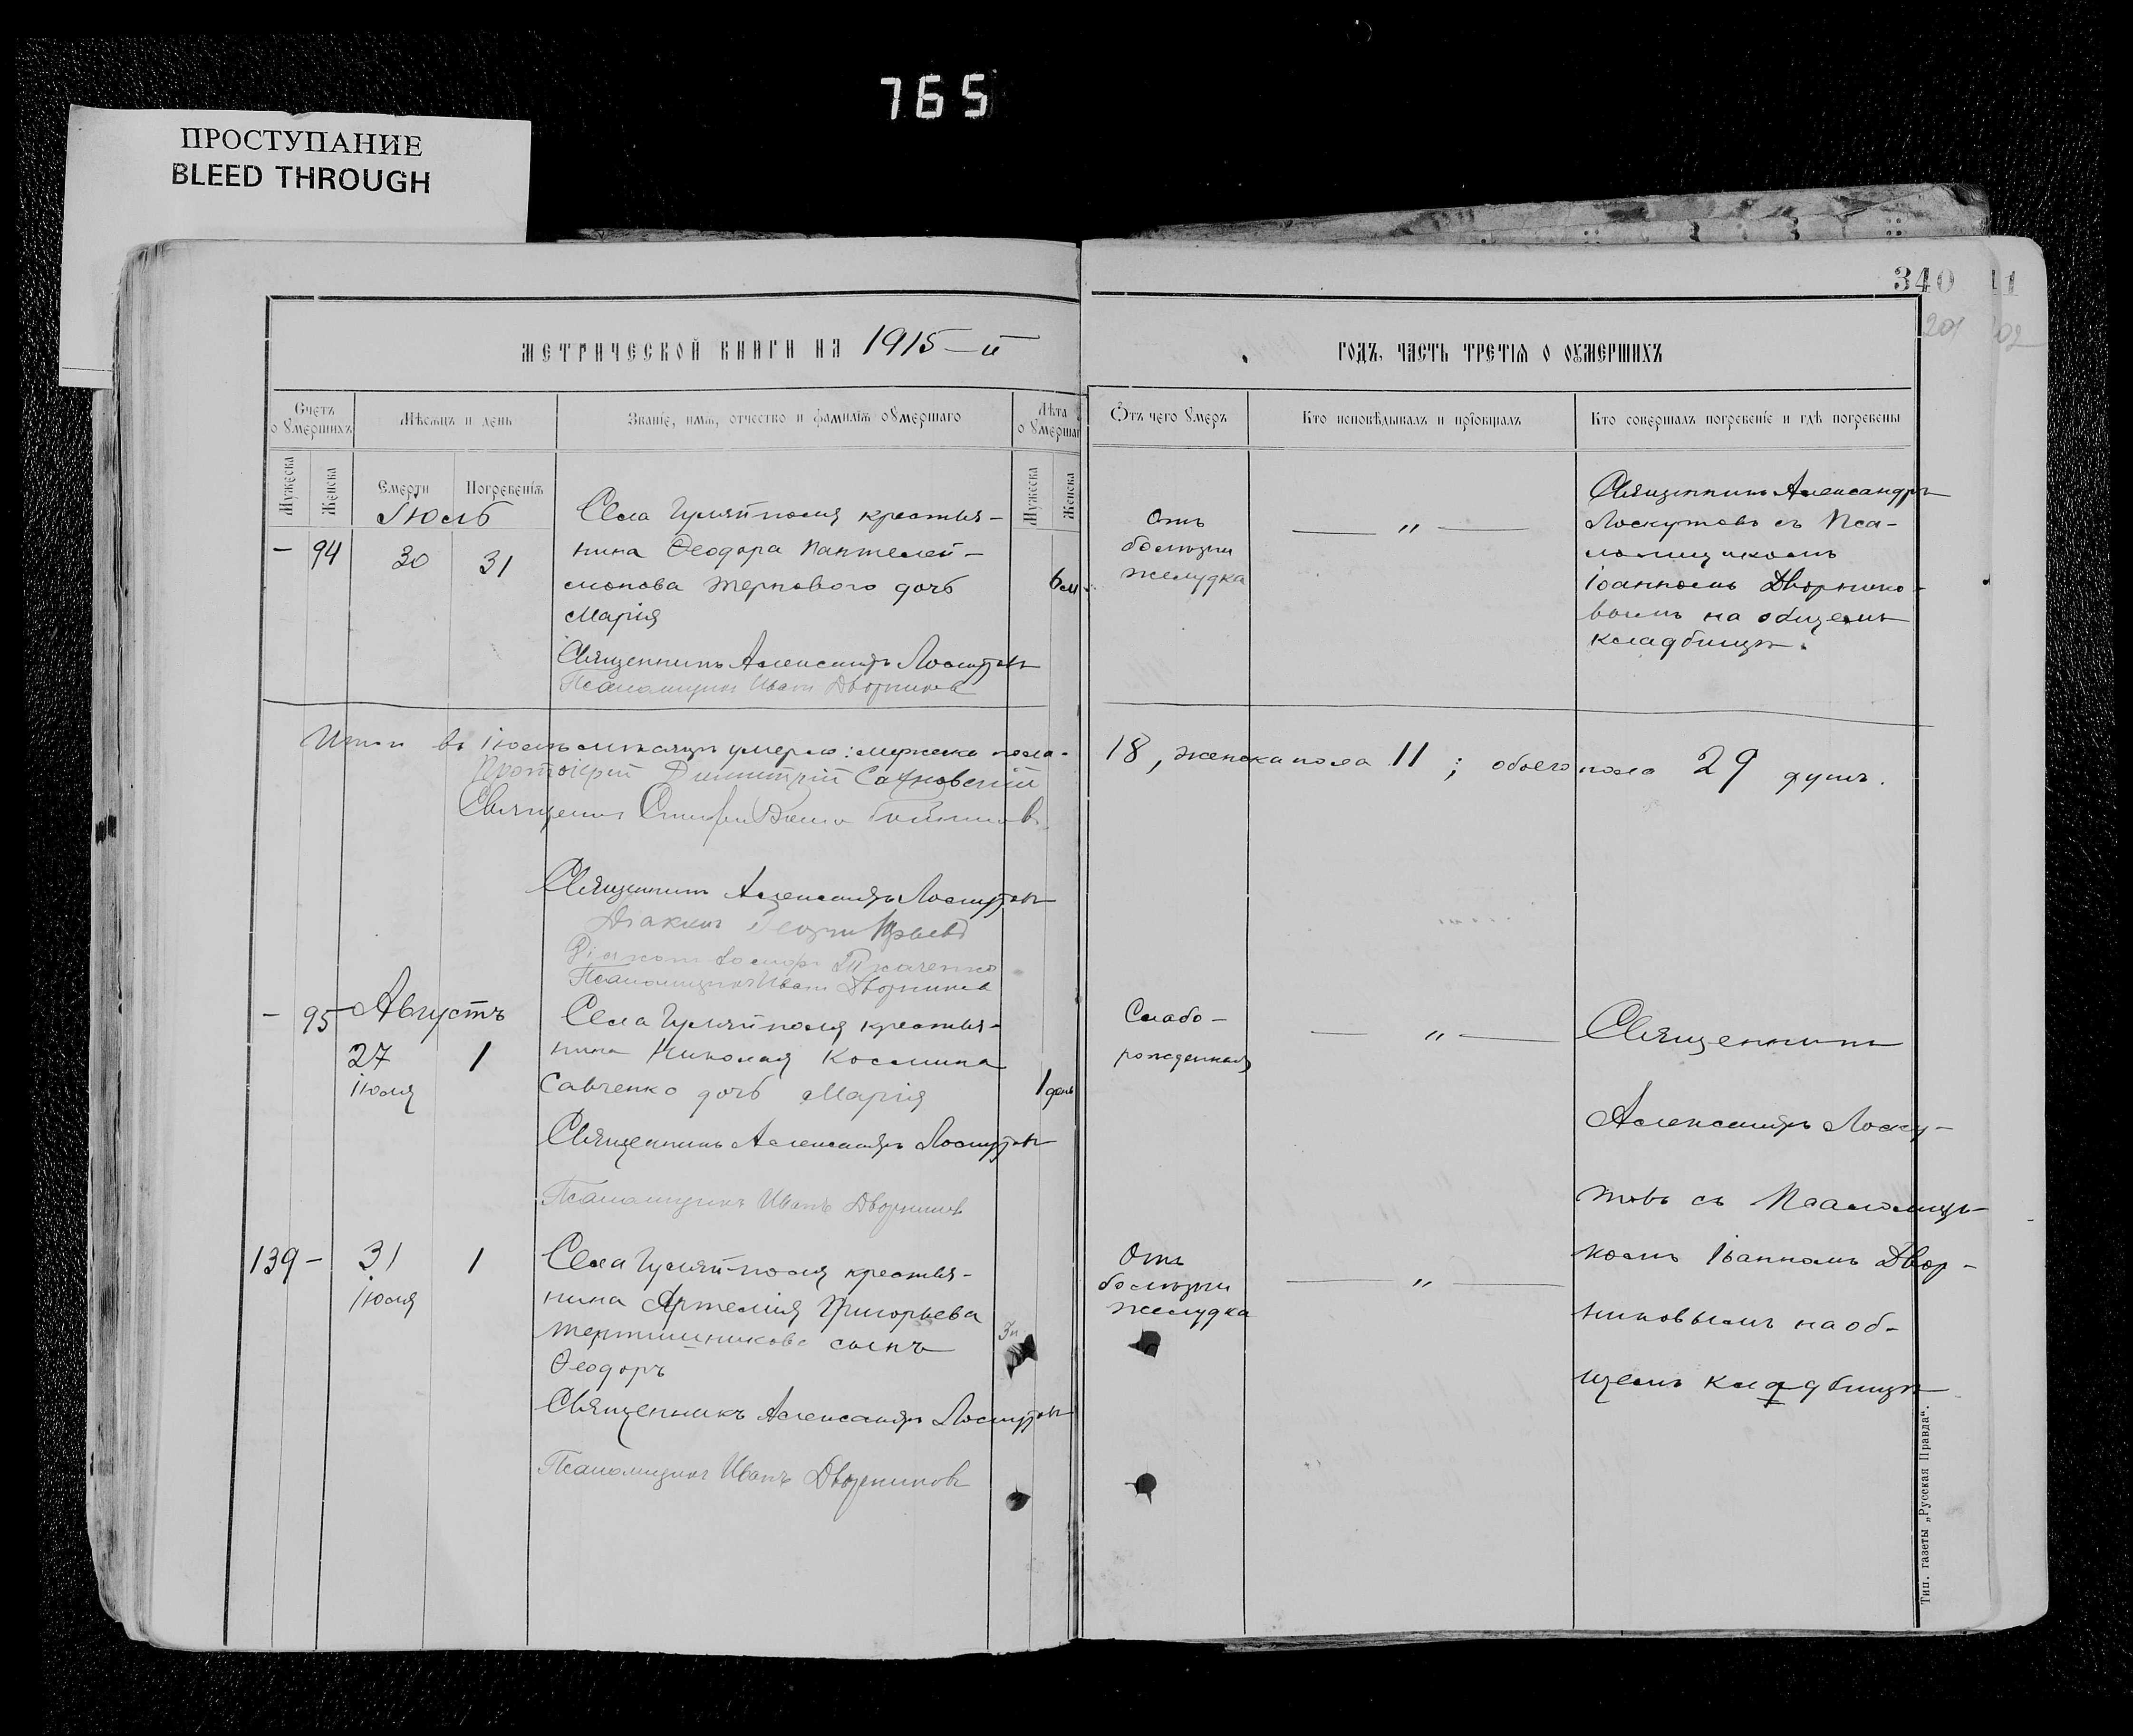 765
ПРОСТУПАНИЕ
BLEED THROUGH
340
11
201
02
МЕТРИЧЕСКОЙ КНИГИ НА 1915-й
ГОДЪ, ЧАСТЬ ТРЕТІѦ О ОУМЕРШИХЪ
Счетъ о Умершихъ
Мѣсяцъ и день
Званіе, имя, отчество и фамилія оУмершаго
Лѣта оУмершаг
Ѿтъ чего Умеръ
Кто исповѣдывалъ и пріобщалъ
Кто совершалъ погребеніе и гдѣ погребены
Мужеска
Женска
Смерти
Погребенія
Мужеска
Женска
Іюль
- 94 30 31
Села Гуляйполя крестья-
нина Ѳеодора Пантелей-
монова Тернового дочь
Марія
6 м.
Священникъ Александръ Лоскутовъ
Псаломщикъ Иванъ Дворниковъ
Отъ
болѣзни
желудка
— „ —
Священникъ Александръ
Лоскутовъ съ Пса-
ломщикомъ
Іоанномъ Дворнико-
вымъ на общемъ
кладбищѣ.
Итого въ Іюлѣ мѣсяцѣ умерло: мужеска пола-
18, женска пола 11; обоего пола 29 душъ.
Протоіерей Димитрій Сахновскій
Священникъ
Священникъ Александръ Лоскутовъ
Діаконъ
Діаконъ Ткаченко
Псаломщикъ Иванъ Дворниковъ
Августъ
- 95
27
Іюля
1
Села Гуляйполя крестья-
нина Николая Космина
Савченко дочь Марія
1 день
Священникъ Александръ Лоскутовъ
Псаломщикъ Иванъ Дворниковъ
Слабо-
рожденная
— „ —
Священникъ
Александръ Лоску-
товъ съ Псаломщи-
комъ Іоанномъ Двор-
никовымъ на об-
щемъ кладбищѣ
139 -
31
Іюля
1
Села Гуляй-поля крестья-
нина Артемія Григорьева
Тертишникова сынъ
Ѳеодоръ
Священникъ Александръ Лоскутовъ
Псаломщикъ Иванъ Дворниковъ
Отъ
болѣзни
желудка
— „ —
Тип. газеты „Русская Правда“.